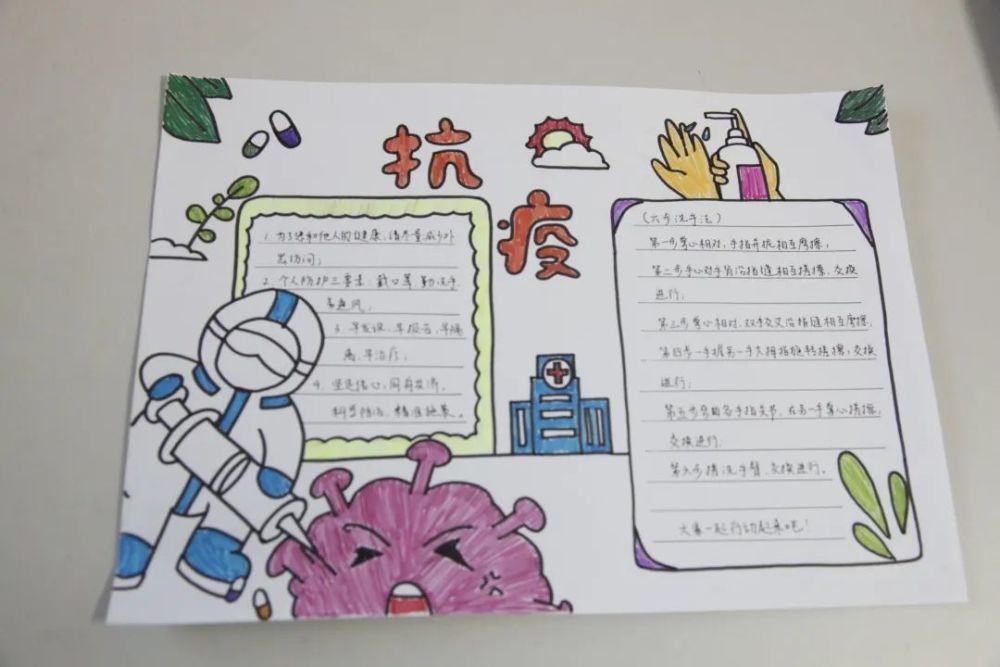 抗疫
1. 为了您和他人的健康，请尽量减少外
出访问；
2. 个人防护三要素：戴口罩、勤洗手
多通风；
3. 早发现、早报告、早隔
离、早治疗；
4. 坚定信心，同舟共济，
科学防治，精准施策。
（六步洗手法）
第一步掌心相对，手指并拢相互摩擦；
第二步手心对手背沿指缝相互搓擦，交换
进行；
第三步掌心相对，双手交叉沿指缝相互摩擦；
第四步一手握另一手大拇指旋转搓擦，交换
进行；
第五步弯曲各手指关节，在另一手掌心搓擦，
交换进行.
第六步搓洗手臂，交换进行。
大家一起行动起来吧！